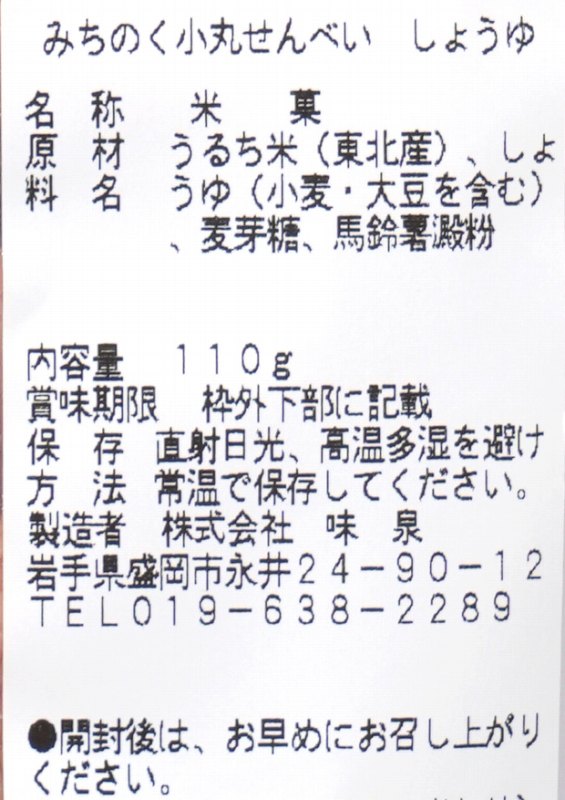 みちのく小丸せんべい　しょうゆ
名　称　　米　　菓
原　材　うるち米（東北産）、しょ
料　名　うゆ（小麦・大豆を含む）
、麦芽糖、馬鈴薯澱粉
内容量　１１０ｇ
賞味期限　枠外下部に記載
保　存　直射日光、高温多湿を避け
方　法　常温で保存してください。
製造者　株式会社　味　泉
岩手県盛岡市永井２４－９０－１２
ＴＥＬ０１９－６３８－２２８９
●開封後は、お早めにお召し上がり
ください。